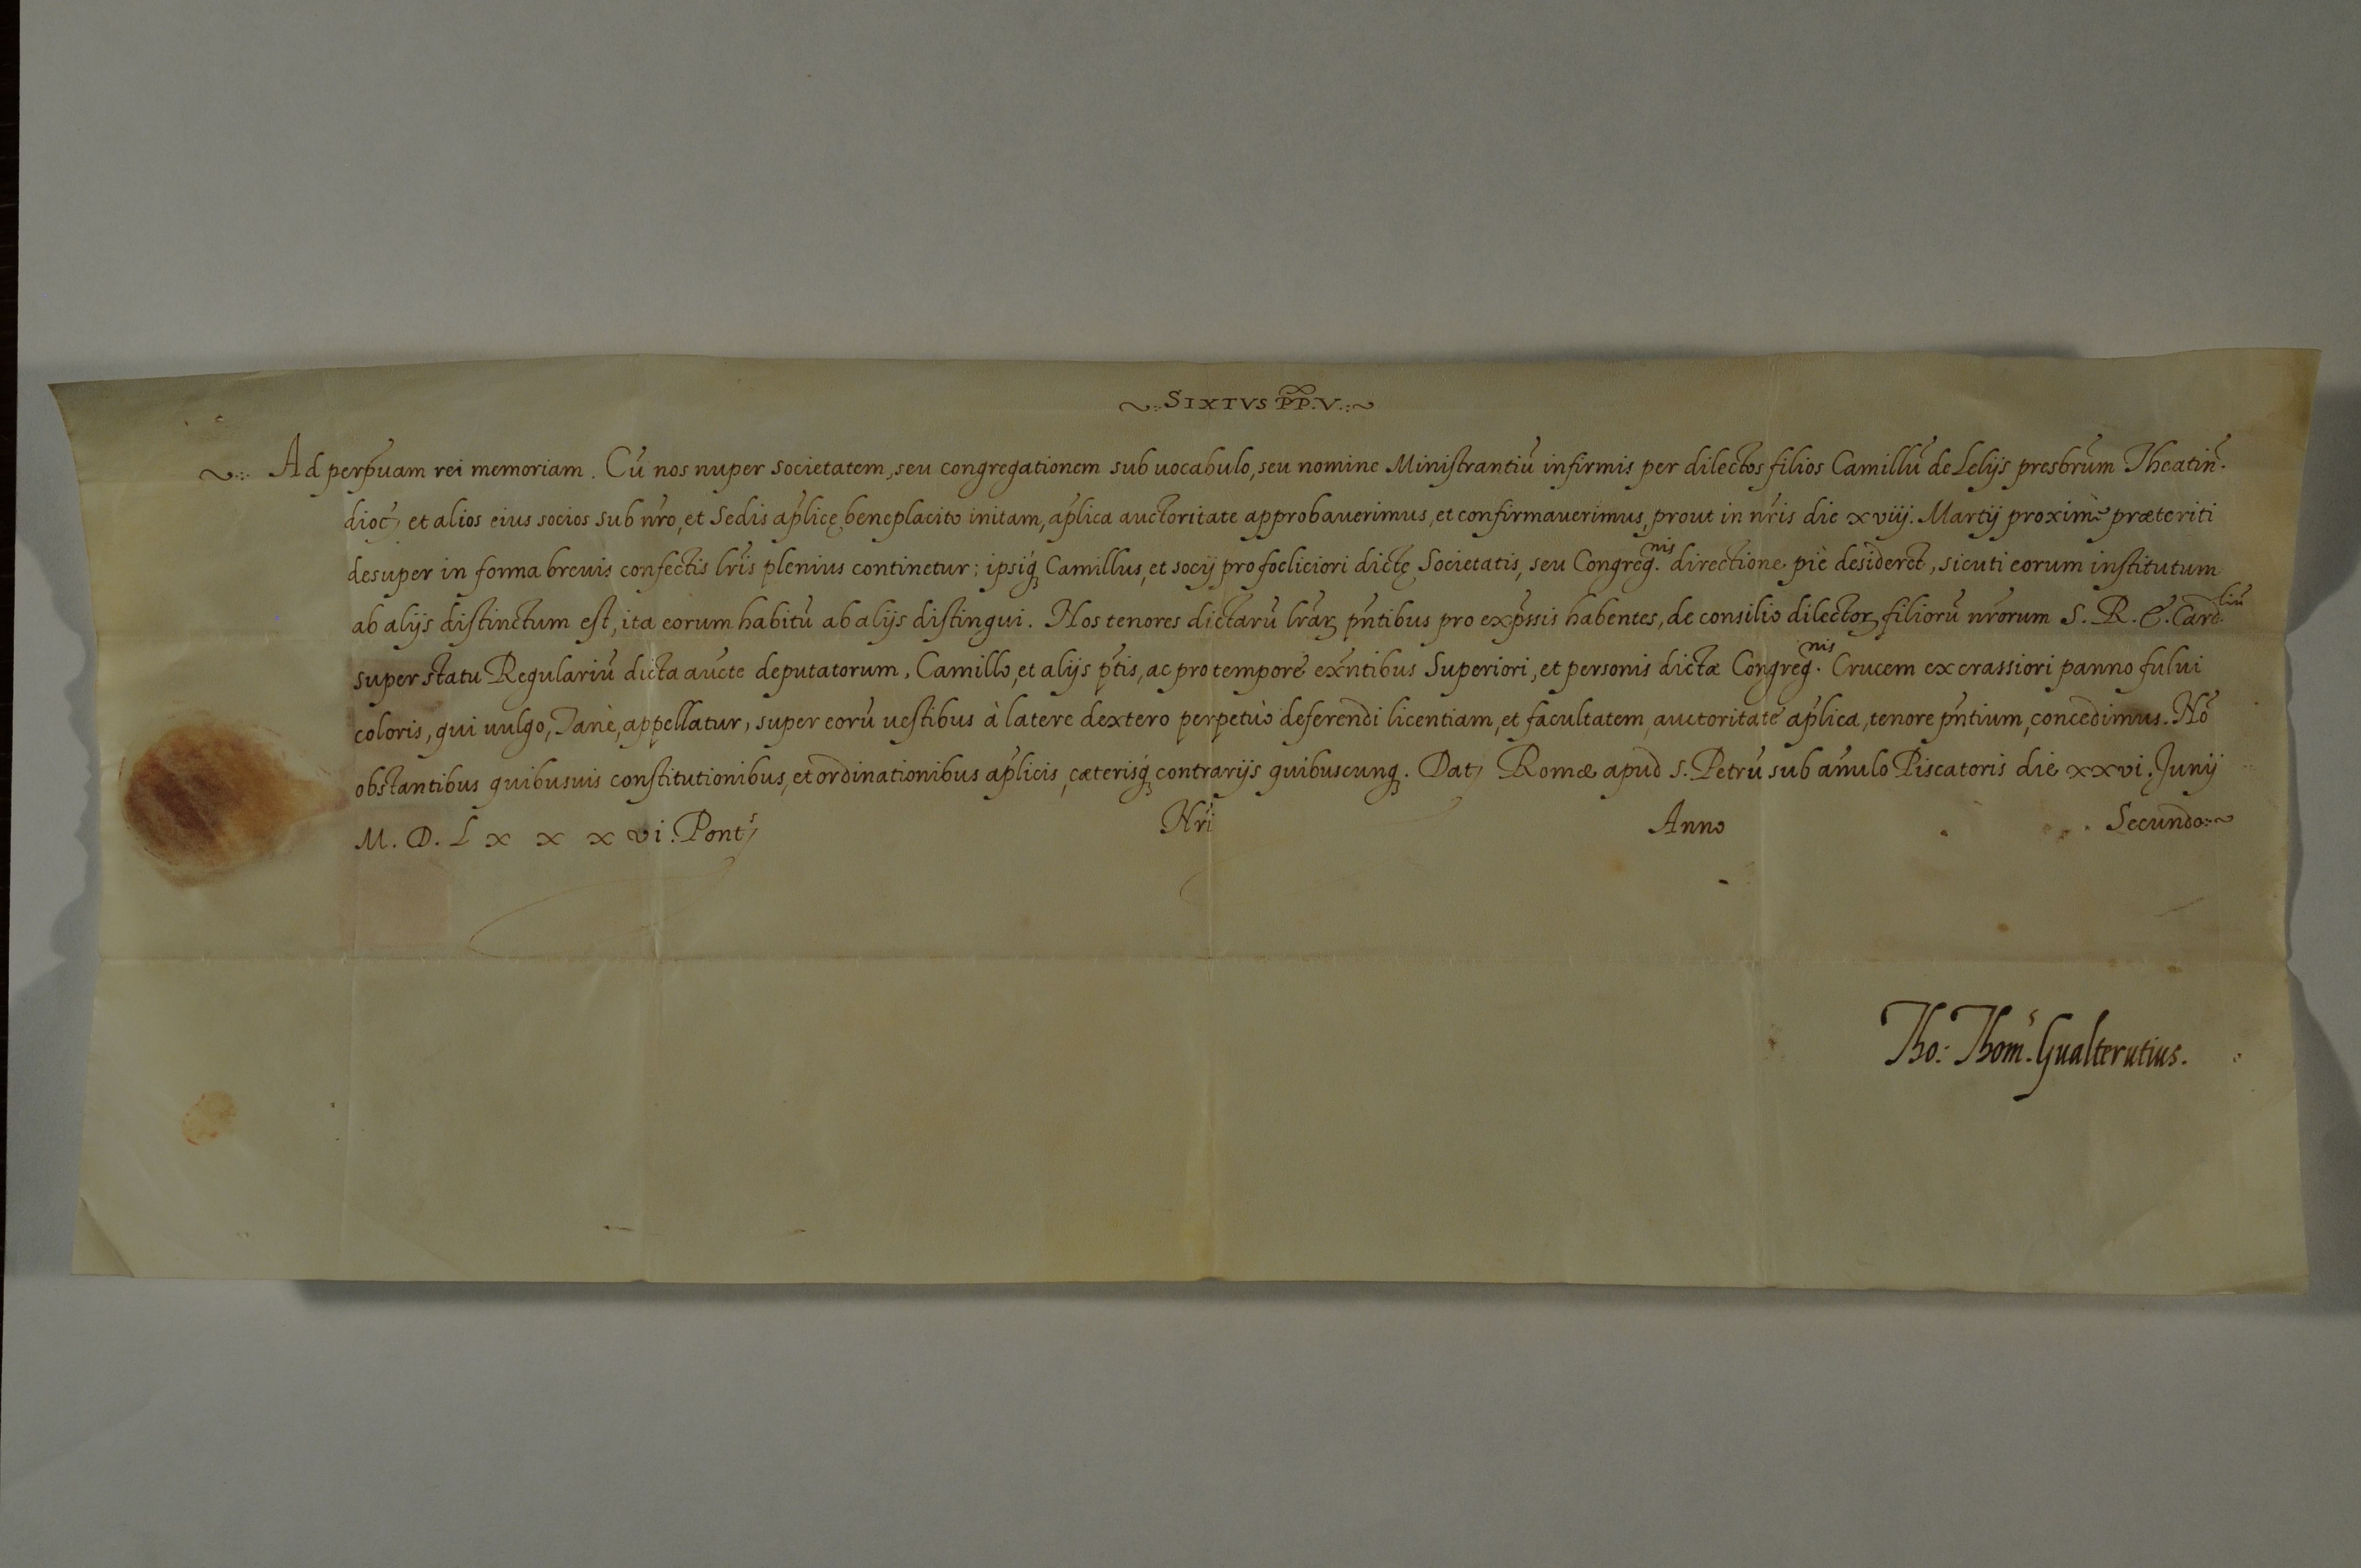 ~:. SIXTVS PP. V. .:~
~:. Ad perp̃uam rei memoriam. Cũ nos nuper societatem, seu congregationem sub uocabulo, seu nomine Ministrantiũ infirmis per dilectos filios Camillũ de Lelijs presbr̃um Theatiñ.
dioc̃, et alios eius socios sub nr̃o, et Sedis ap̃licę beneplacito initam, ap̃lica auctoritate approbauerimus, et confirmauerimus, prout in nr̃is die xviij. Martij proximè præteriti
desuper in forma breuis confectis lr̃is plenius continetur; ipsiq̃ꝫ Camillus, et socij pro foeliciori dictę Societatis, seu Congreg.nis directione piè desiderẽt, sicuti eorum institutum
ab alijs distinctum est, ita eorum habitũ ab alijs distingui. Nos tenores dictarũ lr̃aꝝ pñtibus pro exp̃ssis habentes, de consilio dilectoꝝ filiorũ nr̃orum S. R. E. Card.liũ
super statu Regulariũ dicta auc̃te deputatorum, Camillo, et alijs p̃tis, ac pro tempore exñtibus Superiori, et personis dictæ Congreg.nis Crucem ex crassiori panno fului
coloris, qui uulgo, Tanè, appellatur, super eorũ uestibus à latere dextero perpetuò deferendi licentiam, et facultatem, auctoritate ap̃lica, tenore pñtium, concedimus. Nõ
obstantibus quibusuis constitutionibus, et ordinationibus ap̃licis, cæterisq̃ꝫ contrarijs quibuscunqꝫ. Dat, Romæ apud S. Petrũ sub añulo Piscatoris die xxvi. Junij
M. D. L x x x vi. Pont̃, Nr̃i Anno Secundo:~
Tho: Thom.s Gualterutius.